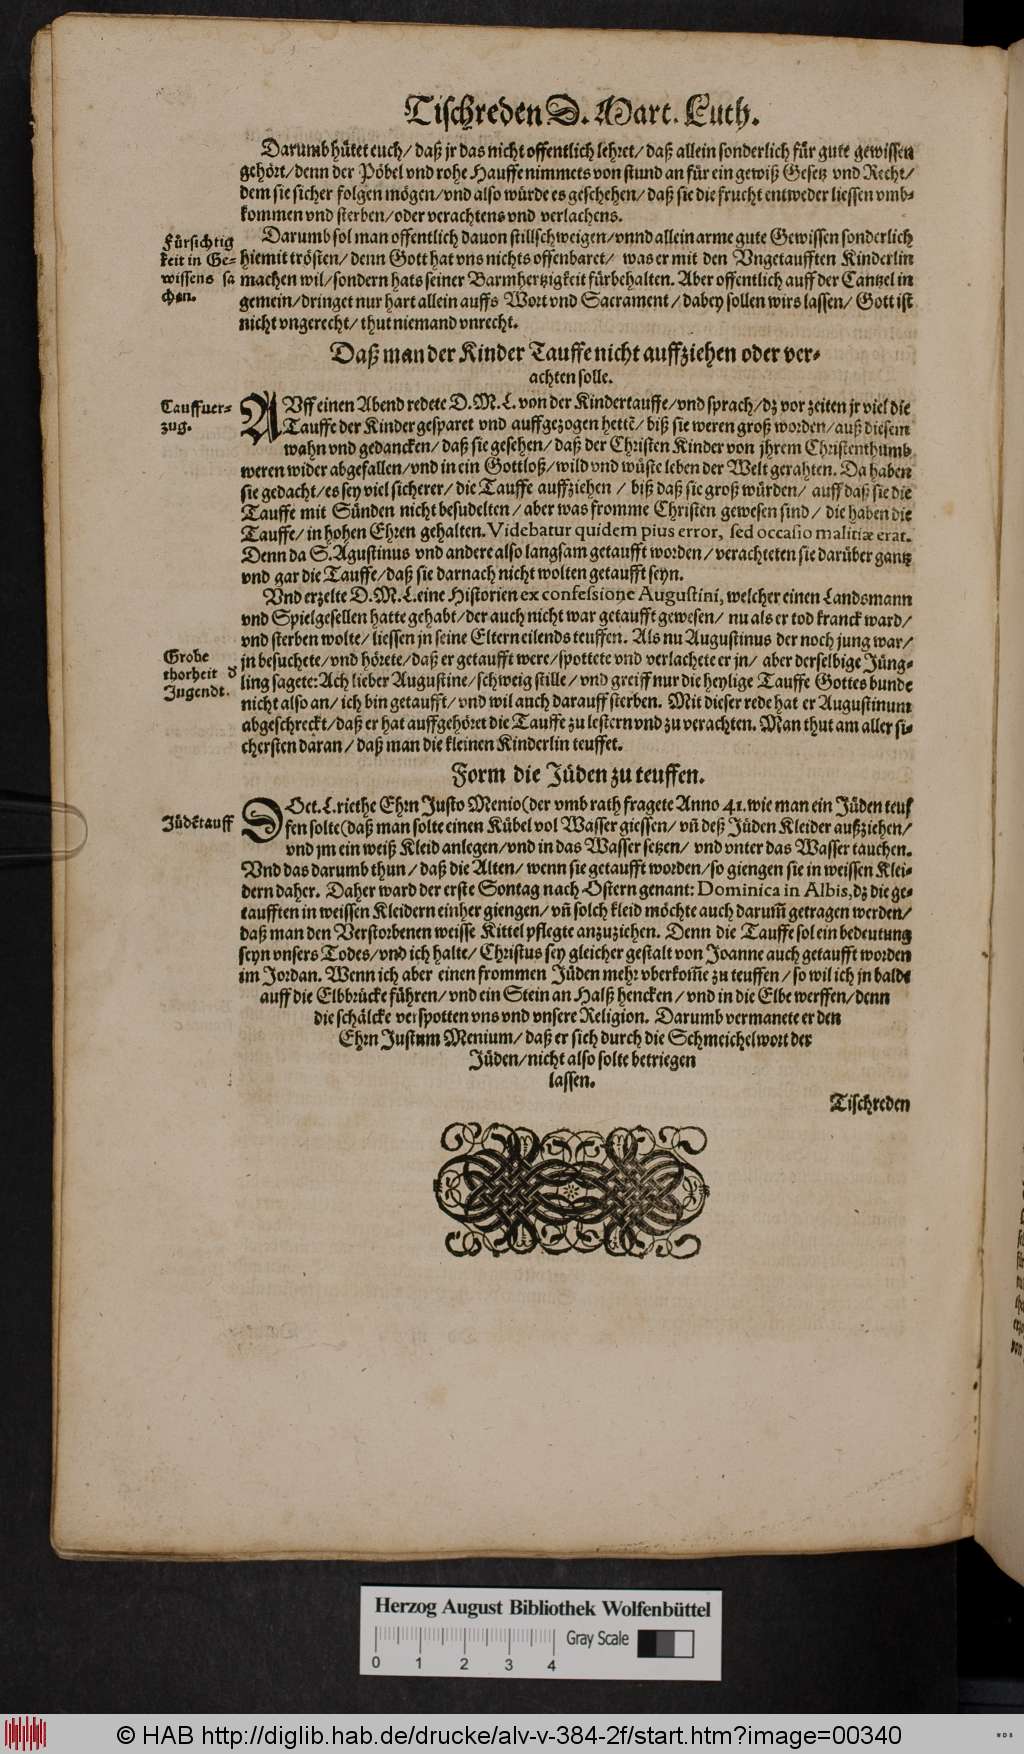 Tischreden D. Mart. Luth.
Darumb hütet euch/ daß jr das nicht offentlich lehret/ daß allein sonderlich für gute gewissen
gehört/ denn der Pöbel vnd rohe Hauffe nimmets von stund an für ein gewiß Gesetz vnd Recht/
dem sie sicher folgen mögen/ vnd also würde es geschehen/ daß sie die frucht entweder liessen vmb-
kommen vnd sterben/ oder verachtens vnd verlachens.
Fürsichtig
keit in Ge-
wissens sa
chen.
Darumb sol man offentlich dauon stillschweigen/ vnnd allein arme gute Gewissen sonderlich
hiemit trösten/ denn Gott hat vns nichts offenbaret/ was er mit den Vngetaufften Kinderlin
machen wil/ sondern hats seiner Barmhertzigkeit fürbehalten. Aber offentlich auff der Cantzel in
gemein/ dringet nur hart allein auffs Wort vnd Sacrament/ dabey sollen wirs lassen/ Gott ist
nicht vngerecht/ thut niemand vnrecht.
Daß man der Kinder Tauffe nicht auffziehen oder ver-
achten solle.
Tauffuer-
zug.
AVff einen Abend redete D. M. L. von der Kindertauffe/ vnd sprach/ dz vor zeiten jr viel die
Tauffe der Kinder gesparet vnd auffgezogen hettē/ biß sie weren groß worden/ auß diesem
wahn vnd gedancken/ daß sie gesehen/ daß der Christen Kinder von jhrem Christenthumb
weren wider abgefallen/ vnd in ein Gottloß/ wild vnd wüste leben der Welt gerahten. Da haben
sie gedacht/ es sey viel sicherer/ die Tauffe auffziehen/ biß daß sie groß würden/ auff daß sie die
Tauffe mit Sünden nicht besudelten/ aber was fromme Christen gewesen sind/ die haben die
Tauffe/ in hohen Ehren gehalten. Videbatur quidem pius error, sed occasio malitiæ erat.
Denn da S. Agustinus vnd andere also langsam getaufft worden/ verachteten sie darüber gantz
vnd gar die Tauffe/ daß sie darnach nicht wolten getaufft seyn.
Vnd erzelte D. M. L. eine Historien ex confessione Augustini, welcher einen Landsmann
vnd Spielgesellen hatte gehabt/ der auch nicht war getaufft gewesen/ nu als er tod kranck ward/
vnd sterben wolte/ liessen jn seine Eltern eilends teuffen. Als nu Augustinus der noch jung war/
Grobe
thorheit d
Jugendt.
jn besuchete/ vnd hörete/ daß er getaufft were/ spottete vnd verlachete er jn/ aber derselbige Jüng-
ling sagete: Ach lieber Augustine/ schweig stille/ vnd greiff nur die heylige Tauffe Gottes bunde
nicht also an/ ich bin getaufft/ vnd wil auch darauff sterben. Mit dieser rede hat er Augustinum
abgeschreckt/ daß er hat auffgehöret die Tauffe zu lestern vnd zu verachten. Man thut am aller si-
chersten daran/ daß man die kleinen Kinderlin teuffet.
Form die Jüden zu teuffen.
Jüdētauff
DOct. L. riethe Ehrn Justo Menio (der vmb rath fragete Anno 41. wie man ein Jüden teuf
fen solte (daß man solte einen Kübel vol Wasser giessen/ vn̄ deß Jüden Kleider außziehen/
vnd jm ein weiß Kleid anlegen/ vnd in das Wasser setzen/ vnd vnter das Wasser tauchen.
Vnd das darumb thun/ daß die Alten/ wenn sie getaufft worden/ so giengen sie in weissen Klei-
dern daher. Daher ward der erste Sontag nach Ostern genant: Dominica in Albis, dz die ge-
taufften in weissen Kleidern einher giengen/ vn̄ solch kleid möchte auch darum̄ getragen werden/
daß man den Verstorbenen weisse Kittel pflegte anzuziehen. Denn die Tauffe sol ein bedeutung
seyn vnsers Todes/ vnd ich halte/ Christus sey gleicher gestalt von Joanne auch getaufft worden
im Jordan. Wenn ich aber einen frommen Jüden mehr vberkom̄e zu teuffen/ so wil ich jn balde
auff die Elbbrücke führen/ vnd ein Stein an Halß hencken/ vnd in die Elbe werffen/ denn
die schälcke verspotten vns vnd vnsere Religion. Darumb vermanete er den
Ehrn Justum Menium/ daß er sich durch die Schmeichelwort der
Jüden/ nicht also solte betriegen
lassen.
Tischreden
Herzog August Bibliothek Wolfenbüttel
Gray Scale
0 1 2 3 4
© HAB http://diglib.hab.de/drucke/alv-v-384-2f/start.htm?image=00340